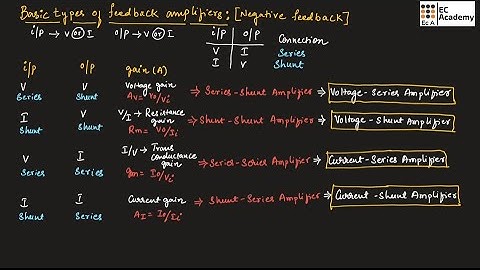 Basic types of feedback amplifiers: [Negative feedback]
EC Academy
Ec A
i/P → V or I   O/P → V or I
i/P   O/P   Connection
V   I   Series
I   V   Shunt
i/P   O/P   gain (A)
V   V   Voltage gain
Series   Shunt   Av = Vo/Vi   ⇒ Series-Shunt Amplifier ⇒ Voltage-Series Amplifier
I   V   V/I → Resistance gain
Shunt   Shunt   Rm = Vo/Ii   ⇒ Shunt-Shunt Amplifier ⇒ Voltage-Shunt Amplifier
V   I   I/V → Trans Conductance gain
Series   Series   gm = Io/Vi   ⇒ Series-Series Amplifier ⇒ Current-Series Amplifier
I   I   Current gain
Shunt   Series   AI = Io/Ii   ⇒ Shunt-Series Amplifier ⇒ Current-Shunt Amplifier